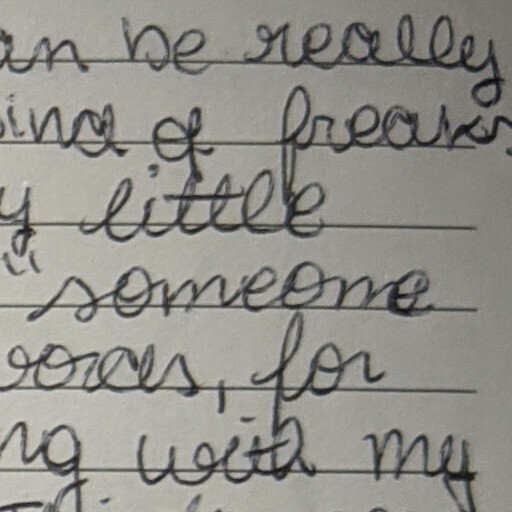 an be really
ind of freaks
y little
" someome
words, for
ng with my